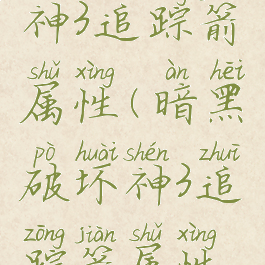 神3追踪箭
shǔ xìng àn hēi
属性(暗黑
pò huài shén zhuī
破坏神3追
zōng jiàn shǔ xìng
踪箭属性